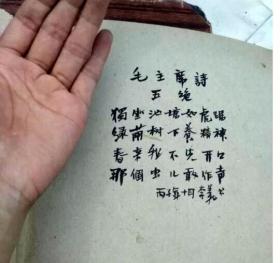 毛主席詩
五绝
獨坐池塘如虎踞
绿荫树下養精神
春来我不先開口
那個虫儿敢作声